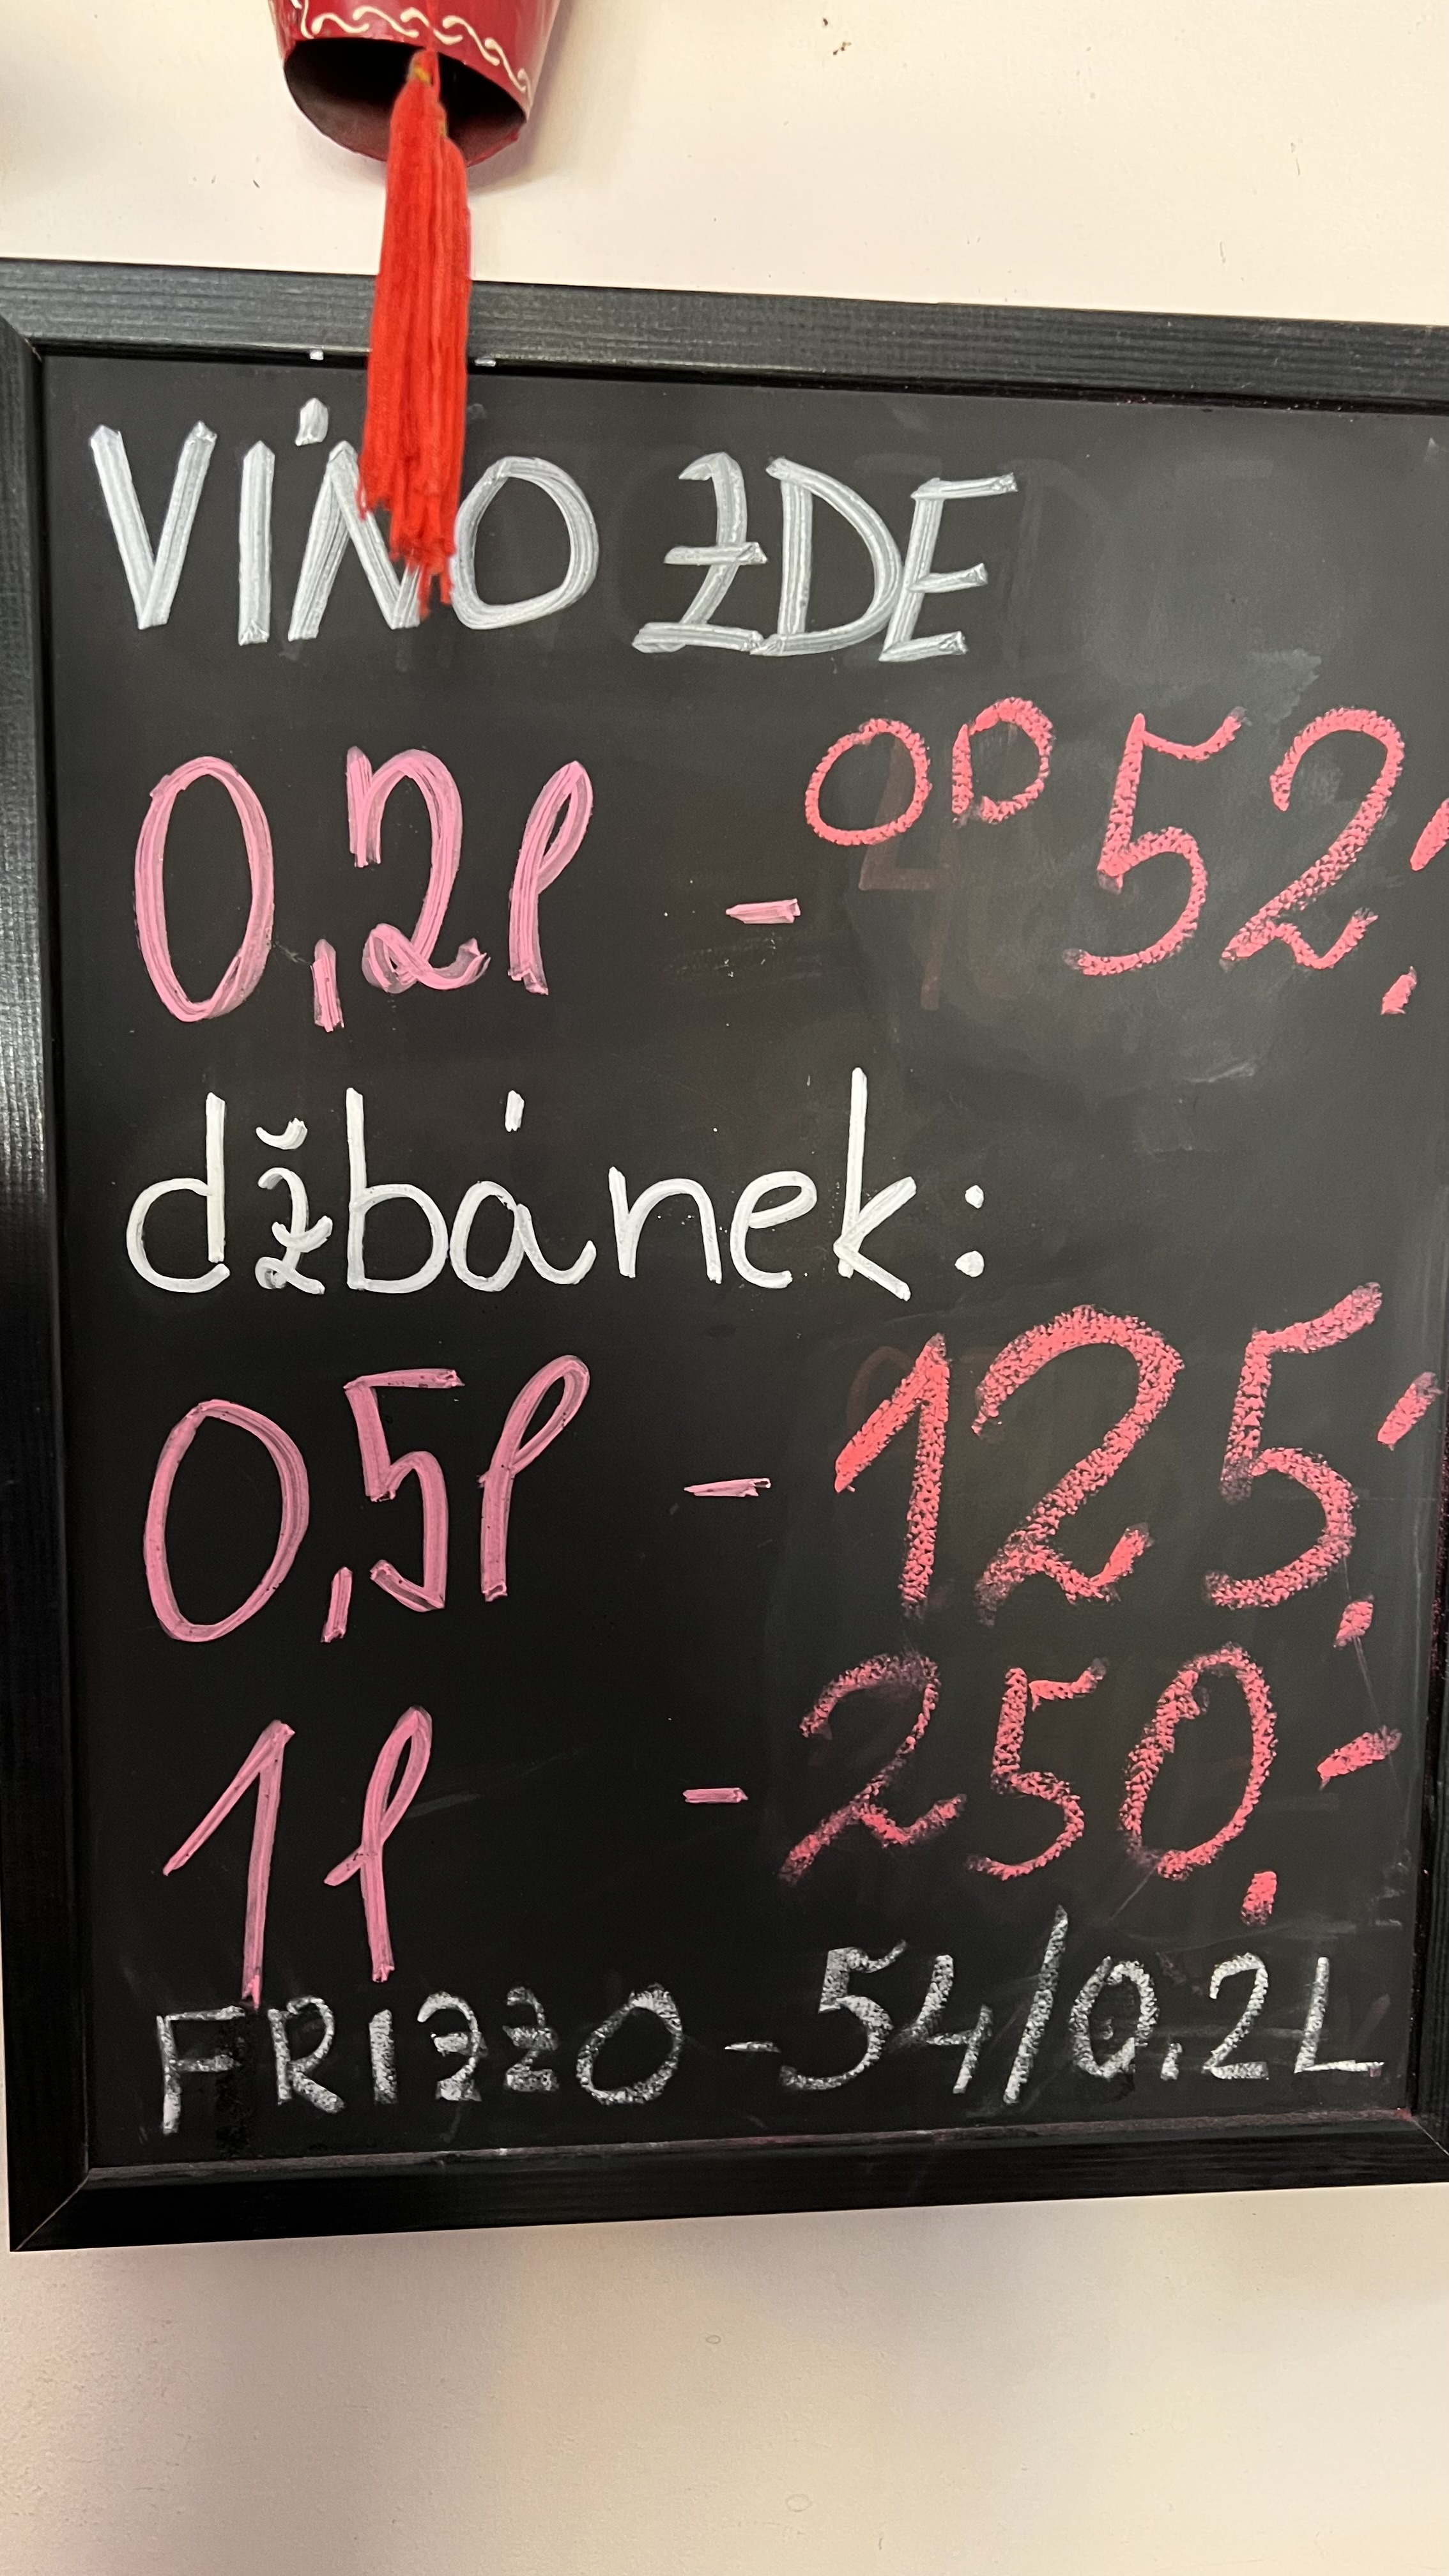 VÍNO ZDE
0,2l - OD 52,-
džbánek:
0,5l - 125,-
1l - 250,-
FRIZZO - 54/0.2L